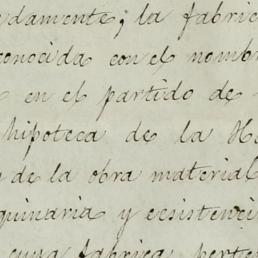 damente; la fabric
conocida con el nombr
en el partido de
hipoteca de la Ha
de la obra material
quinaria y ecsistenci
cuya fabrica perte